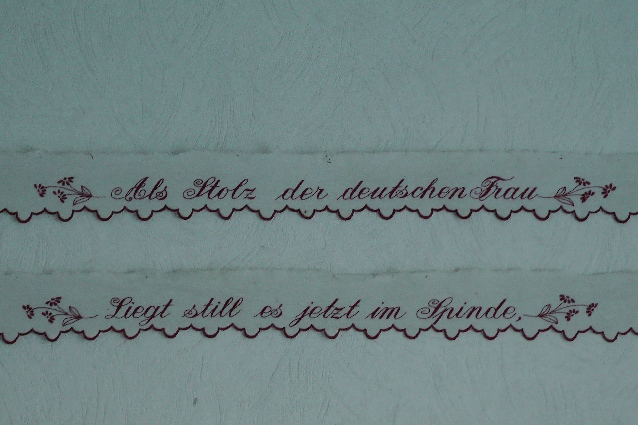 Als Stolz der deutschen Frau
Liegt still es jetzt im Spinde,